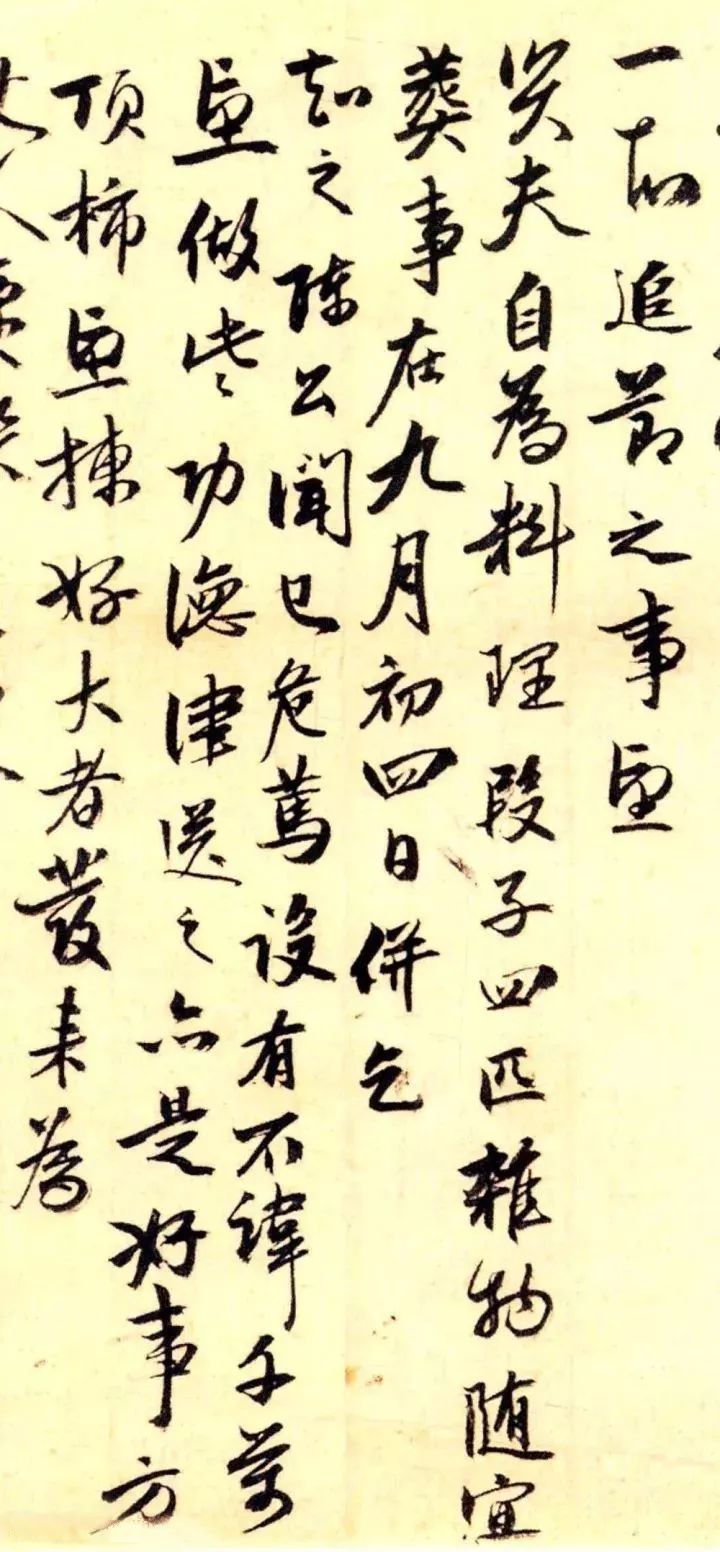 一追節之事望
夫自為料理段子四匹雜物隨宜
葬事在九月初四日併乞
知之陳公聞已危篤設有不諱千萬
望做些功德津送之亦是好事方
頂柿望揀好大者發來為